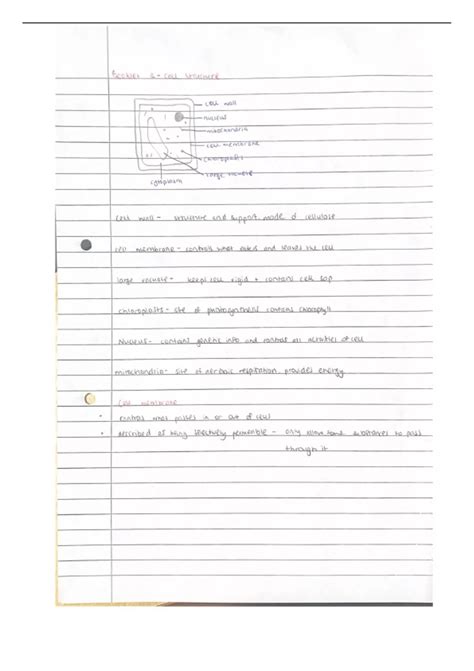 cell structure
cell wall
nucleus
mitochondria
cell membrane
chloroplasts
large vacuole
cytoplasm
cell wall - structure and support made of cellulose
cell membrane - controls what enters and leaves the cell
large vacuole - keeps cell rigid + contains cell sap
chloroplasts - site of photosynthesis contains chlorophyll
Nucleus - contains genetic info and controls all activities of cell
mitochondria - site of aerobic respiration provides energy
Cell membrane
• controls what passes in or out of cell
• described as being selectively permeable - only allows some substances to pass
through it